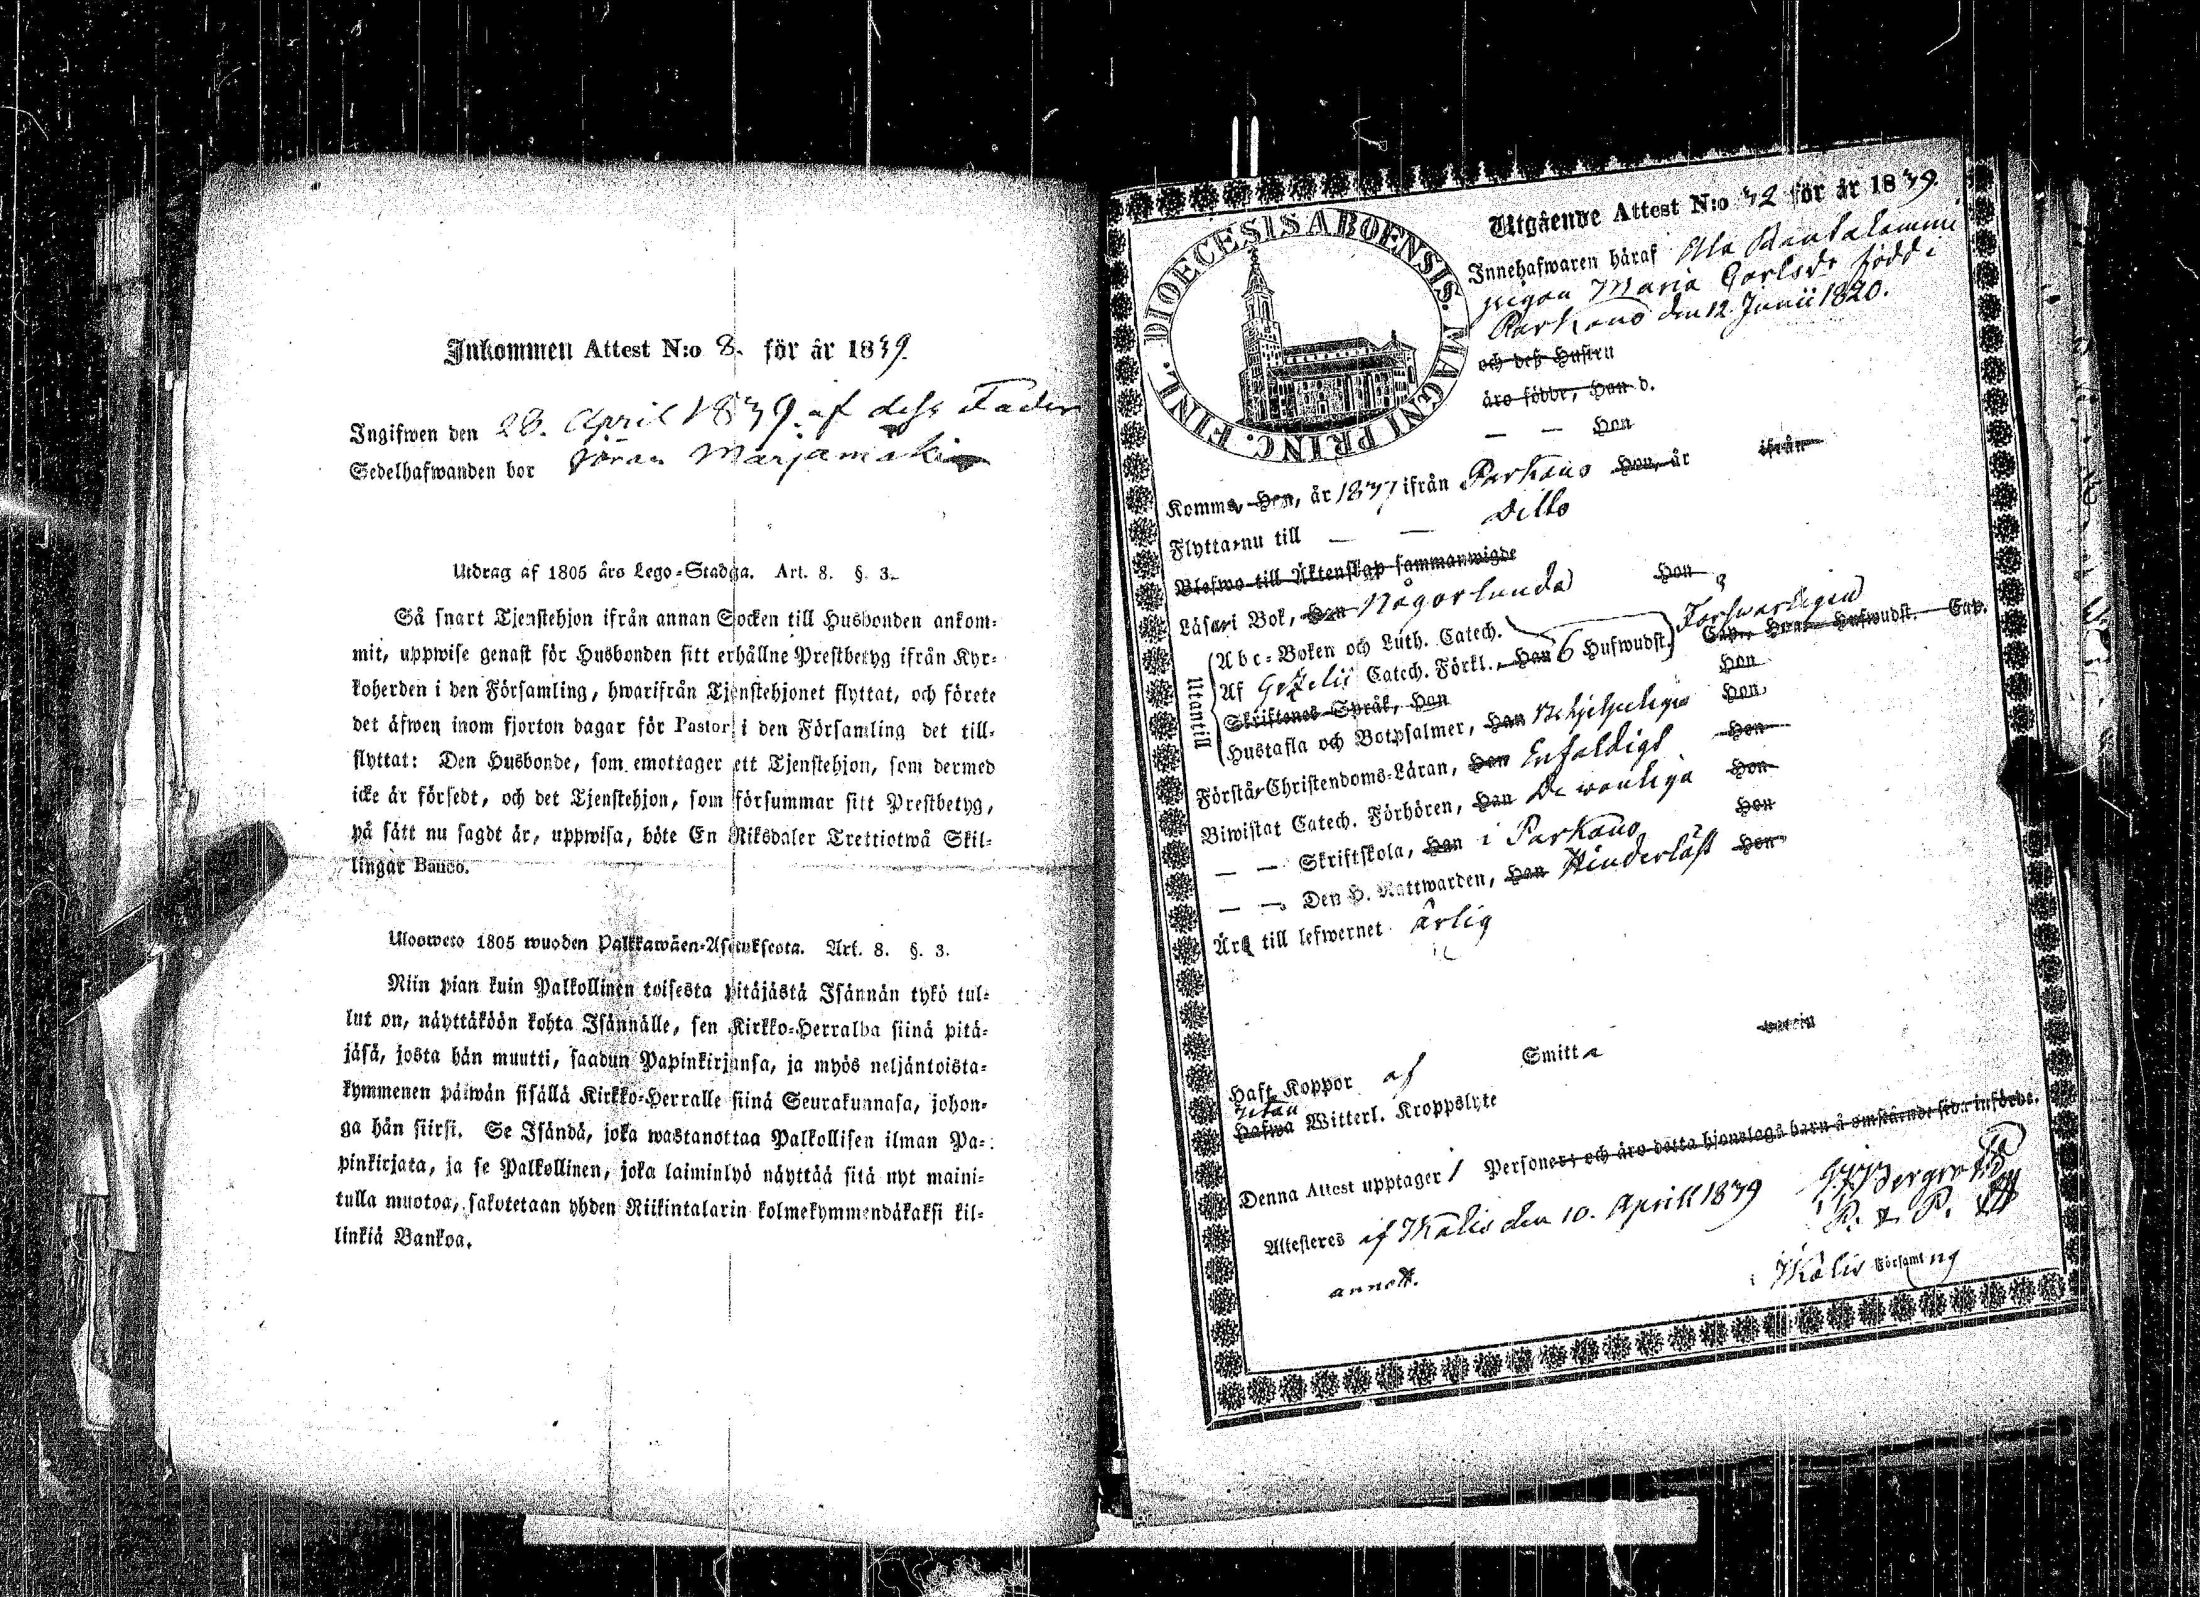 Inkommen Attest N:o 8. för år 1839.
Ingifwen den 28. April 1839. af dess Fader
Sedelhafwanden bor Jöran Marjamäki
Utdrag af 1805 års Lego-Stadga. Art. 8. §. 3.
Så snart Tjenstehjon ifrån annan Socken till Husbonden ankom-
mit, uppwise genast för Husbonden sitt erhållne Prestbetyg ifrån Kyr-
koherden i den Församling, hwarifrån Tjenstehjonet flyttat, och förete
det äfwen inom fjorton dagar för Pastor i den Församling det till-
flyttat: Den Husbonde, som emottager ett Tjenstehjon, som dermed
icke är försedt, och det Tjenstehjon, som försummar sitt Prestbetyg,
på sätt nu sagdt är, uppwisa, böte En Riksdaler Trettiotwå Skil-
lingar Banco.
Ulosweto 1805 wuoden Palkkawäen-Asetuksesta. Art. 8. §. 3.
Niin pian kuin Palkollinen toisesta pitäjästä Isännän tykö tul-
lut on, näyttäköön kohta Isännälle, sen Kirkko-Herralda siinä pitä-
jäsä, josta hän muutti, saadun Papinkirjansa, ja myös neljäntoista-
kymmenen päiwän sisällä Kirkko-Herralle siinä Seurakunnasa, johon-
ga hän siirsi. Se Isändä, joka wastanottaa Palkollisen ilman Pa-
pinkirjata, ja se Palkollinen, joka laiminlyö näyttää sitä nyt maini-
tulla muotoa, sakotetaan yhden Riikintalarin kolmekymmendäkaksi kil-
linkiä Bankoa.
DIOECESIS ABOENSIS. MAGNI PRINC. FINL.
Utgående Attest N:o 42 för år 1839.
Innehafwaren häraf
pigan Maria Carlsdr född i
Parkano den 12 Junii 1820.
och deß Hustru
äro födde, Han d.
— — Hon
Komma, Han, år 1837 ifrån Parkano Hon, år ifrån
Flyttar nu till — — Ditto
Blefwo till Äktenskap sammanwigde
Läsa i Bok, Han Någorlunda Hon
Utantill
Abc-Boken och Luth. Catech. Förswarligen
Af Gezelii Catech. Förkl., Han 6 Hufwudst. Cap., Hon Hufwudst. Cap.
Skriftenes Språk, Han Hon
Hustafla och Botpsalmer, Han Nöjeligen Hon
Förstå Christendoms-Läran, Han Enfaldigt Hon
Biwistat Catech. Förhören, Han De wanliga Hon
— — Skriftskola, Han i Parkano Hon
— — Den H. Nattwarden, Han Hinderlöst Hon
Är till lefwernet ärlig
Haft Koppor af Smitta waccin
utan
Hafwa Witterl. Kroppslyte
Denna Attest upptager 1 Personer; och äro detta hjonelags barn å omstående sida införde.
Attesteres af Ikalis den 10. Aprill 1839 Bergroth
i Ikalis Församling